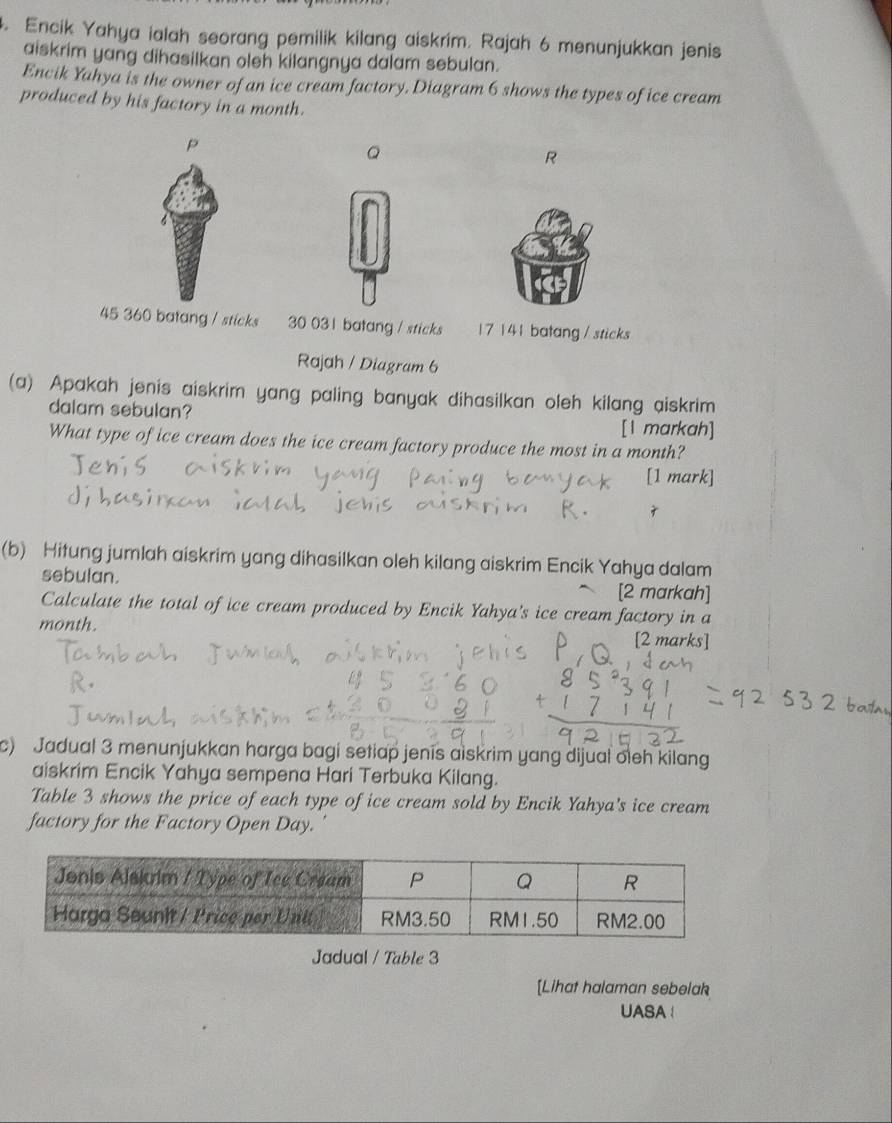 4. Encik Yahya ialah seorang pemilik kilang aiskrim. Rajah 6 menunjukkan jenis
aiskrim yang dihasilkan oleh kilangnya dalam sebulan.
Encik Yahya is the owner of an ice cream factory. Diagram 6 shows the types of ice cream
produced by his factory in a month.
P Q R
ICE
45 360 batang / sticks 30 031 batang / sticks 17 141 batang / sticks
Rajah / Diagram 6
(a) Apakah jenis aiskrim yang paling banyak dihasilkan oleh kilang aiskrim
dalam sebulan?
[1 markah]
What type of ice cream does the ice cream factory produce the most in a month?
[1 mark]
Jenis aiskrim yang paing banyak
dihasirkan ialah jenis aiskrim R.
(b) Hitung jumlah aiskrim yang dihasilkan oleh kilang aiskrim Encik Yahya dalam
sebulan.
[2 markah]
Calculate the total of ice cream produced by Encik Yahya's ice cream factory in a
month.
[2 marks]
Tambah Jumlah aiskrim jenis P, Q, dan
R. 4 5 3 6 0 8 5 3 9 1
Jumlah aiskrim + 3 0 0 3 1 + 1 7 1 4 1 = 92 532
8 5 3 9 1 9 2 5 3 2
c) Jadual 3 menunjukkan harga bagi setiap jenis aiskrim yang dijual oleh kilang
aiskrim Encik Yahya sempena Hari Terbuka Kilang.
Table 3 shows the price of each type of ice cream sold by Encik Yahya's ice cream
factory for the Factory Open Day.
Jenis Aiskrim / Type of Ice Cream P Q R
Harga Seunit / Price per Unit RM3.50 RM1.50 RM2.00
Jadual / Table 3
[Lihat halaman sebelah
UASA